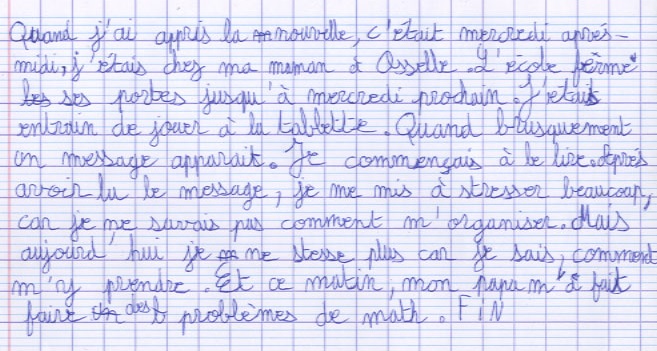 Quand j'ai appris la nouvelle, c'était mercredi après-
midi, j'étais chez ma maman à Osselle. L'école ferme
ses portes jusqu'à mercredi prochain. J'étais
entrain de jouer à la tablette. Quand brusquement
un message apparait. Je commençais à le lire. Après
avoir lu le message, je me mis à stresser beaucoup,
car je ne savais pas comment m'organiser. Mais
aujourd'hui je ne stesse plus car je sais, comment
m'y prendre. Et ce matin, mon papa m'a fait
faire des problèmes de math. FIN